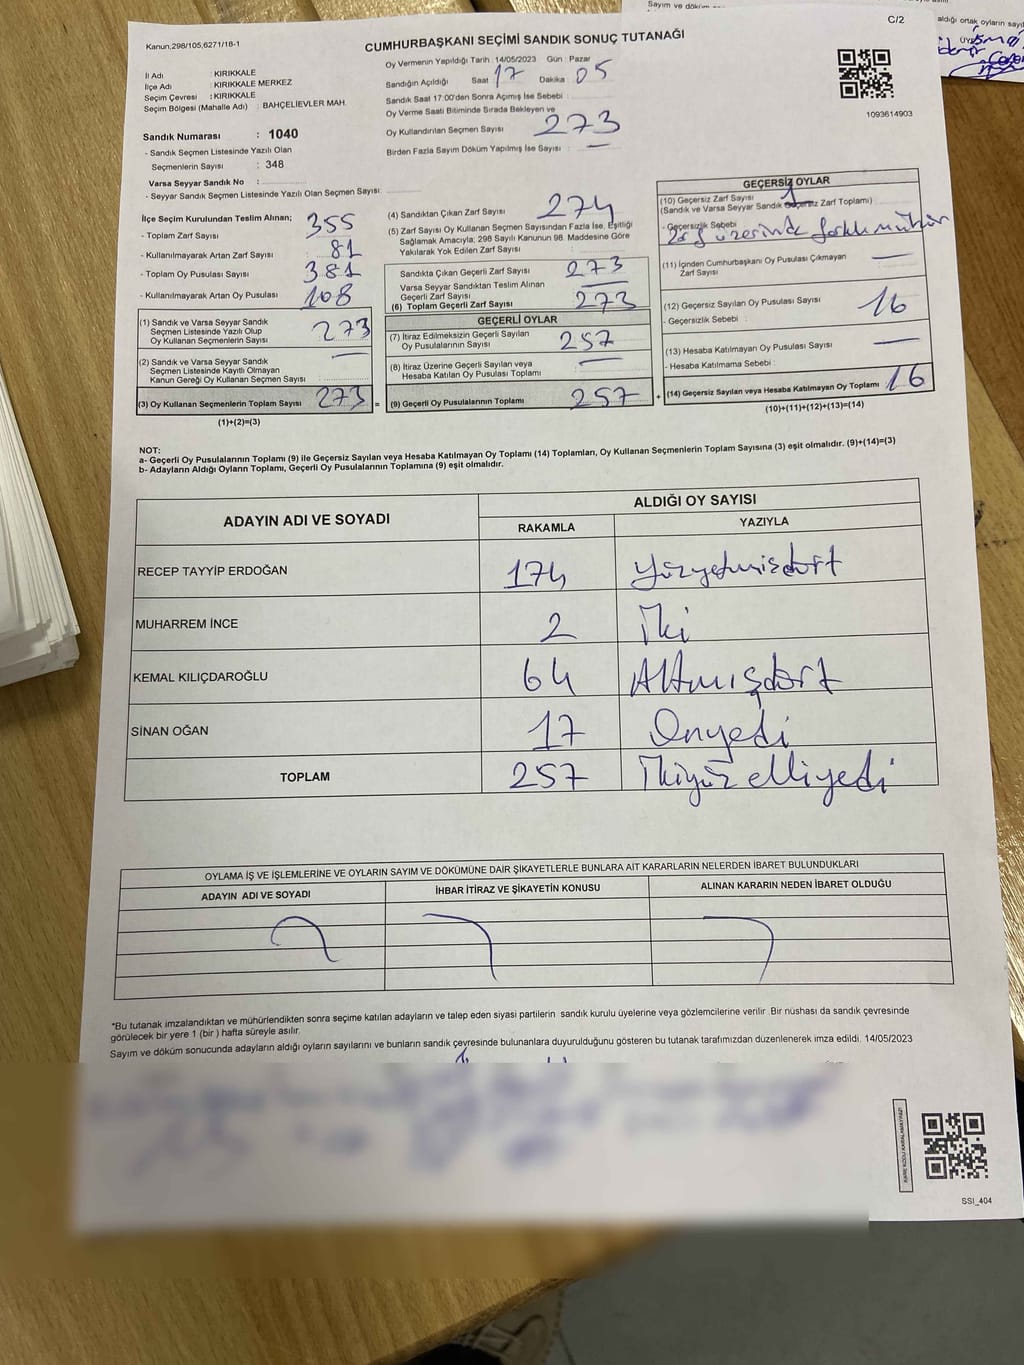 Sayım ve döküm
C/2
aldığı ortak oyların sayıl
Kanun,298/105,6271/18-1
CUMHURBAŞKANI SEÇİMİ SANDIK SONUÇ TUTANAĞI
İl Adı : KIRIKKALE
İlçe Adı : KIRIKKALE MERKEZ
Seçim Çevresi : KIRIKKALE
Seçim Bölgesi (Mahalle Adı) : BAHÇELİEVLER MAH.
Oy Vermenin Yapıldığı Tarih :14/05/2023 Gün : Pazar
Sandığın Açıldığı Saat 17 Dakika 05
Sandık Saat 17:00'den Sonra Açımış İse Sebebi :
Oy Verme Saati Bitiminde Sırada Bekleyen ve
Oy Kullandırılan Seçmen Sayısı 273
Birden Fazla Sayım Döküm Yapılmış İse Sayısı : —
1093614903
Sandık Numarası : 1040
- Sandık Seçmen Listesinde Yazılı Olan
Seçmenlerin Sayısı : 348
Varsa Seyyar Sandık No :
- Seyyar Sandık Seçmen Listesinde Yazılı Olan Seçmen Sayısı:
İlçe Seçim Kurulundan Teslim Alınan;
- Toplam Zarf Sayısı 355
- Kullanılmayarak Artan Zarf Sayısı 81
- Toplam Oy Pusulası Sayısı 381
- Kullanılmayarak Artan Oy Pusulası 108
(1) Sandık ve Varsa Seyyar Sandık
Seçmen Listesinde Yazılı Olup
Oy Kullanan Seçmenlerin Sayısı 273
(2) Sandık ve Varsa Seyyar Sandık
Seçmen Listesinde Kayıtlı Olmayan
Kanun Gereği Oy Kullanan Seçmen Sayısı : —
(3) Oy Kullanan Seçmenlerin Toplam Sayısı 273 =
(1)+(2)=(3)
(4) Sandıktan Çıkan Zarf Sayısı 274
(5) Zarf Sayısı Oy Kullanan Seçmen Sayısından Fazla İse, Eşitliği
Sağlamak Amacıyla; 298 Sayılı Kanunun 98. Maddesine Göre
Yakılarak Yok Edilen Zarf Sayısı :
Sandıkta Çıkan Geçerli Zarf Sayısı 273
Varsa Seyyar Sandıktan Teslim Alınan
Geçerli Zarf Sayısı —
(6) Toplam Geçerli Zarf Sayısı 273
GEÇERLİ OYLAR
(7) İtiraz Edilmeksizin Geçerli Sayılan
Oy Pusulalarının Sayısı 257
(8) İtiraz Üzerine Geçerli Sayılan veya
Hesaba Katılan Oy Pusulası Toplamı —
(9) Geçerli Oy Pusulalarının Toplamı 257 +
GEÇERSİZ OYLAR
(10) Geçersiz Zarf Sayısı 1
(Sandık ve Varsa Seyyar Sandık Geçersiz Zarf Toplamı)
- Geçersizlik Sebebi
Zarf üzerinde farklı mühür
(11) İçinden Cumhurbaşkanı Oy Pusulası Çıkmayan
Zarf Sayısı —
(12) Geçersiz Sayılan Oy Pusulası Sayısı 16
- Geçersizlik Sebebi :
(13) Hesaba Katılmayan Oy Pusulası Sayısı —
- Hesaba Katılmama Sebebi :
(14) Geçersiz Sayılan veya Hesaba Katılmayan Oy Toplamı 16
(10)+(11)+(12)+(13)=(14)
NOT:
a- Geçerli Oy Pusulalarının Toplamı (9) ile Geçersiz Sayılan veya Hesaba Katılmayan Oy Toplamı (14) Toplamları, Oy Kullanan Seçmenlerin Toplam Sayısına (3) eşit olmalıdır. (9)+(14)=(3)
b- Adayların Aldığı Oyların Toplamı, Geçerli Oy Pusulalarının Toplamına (9) eşit olmalıdır.
ADAYIN ADI VE SOYADI ALDIĞI OY SAYISI
RAKAMLA YAZIYLA
RECEP TAYYİP ERDOĞAN 174 Yüzyetmişdört
MUHARREM İNCE 2 İki
KEMAL KILIÇDAROĞLU 64 Altmışdört
SİNAN OĞAN 17 Onyedi
TOPLAM 257 İkiyüz elliyedi
OYLAMA İŞ VE İŞLEMLERİNE VE OYLARIN SAYIM VE DÖKÜMÜNE DAİR ŞİKAYETLERLE BUNLARA AİT KARARLARIN NELERDEN İBARET BULUNDUKLARI
ADAYIN ADI VE SOYADI İHBAR İTİRAZ VE ŞİKAYETİN KONUSU ALINAN KARARIN NEDEN İBARET OLDUĞU
*Bu tutanak imzalandıktan ve mühürlendikten sonra seçime katılan adayların ve talep eden siyasi partilerin sandık kurulu üyelerine veya gözlemcilerine verilir. Bir nüshası da sandık çevresinde
görülecek bir yere 1 (bir ) hafta süreyle asılır.
Sayım ve döküm sonucunda adayların aldığı oyların sayılarını ve bunların sandık çevresinde bulunanlara duyurulduğunu gösteren bu tutanak tarafımızdan düzenlenerek imza edildi. 14/05/2023
KARE KODU KARALAMAYINIZ!
SSI_404